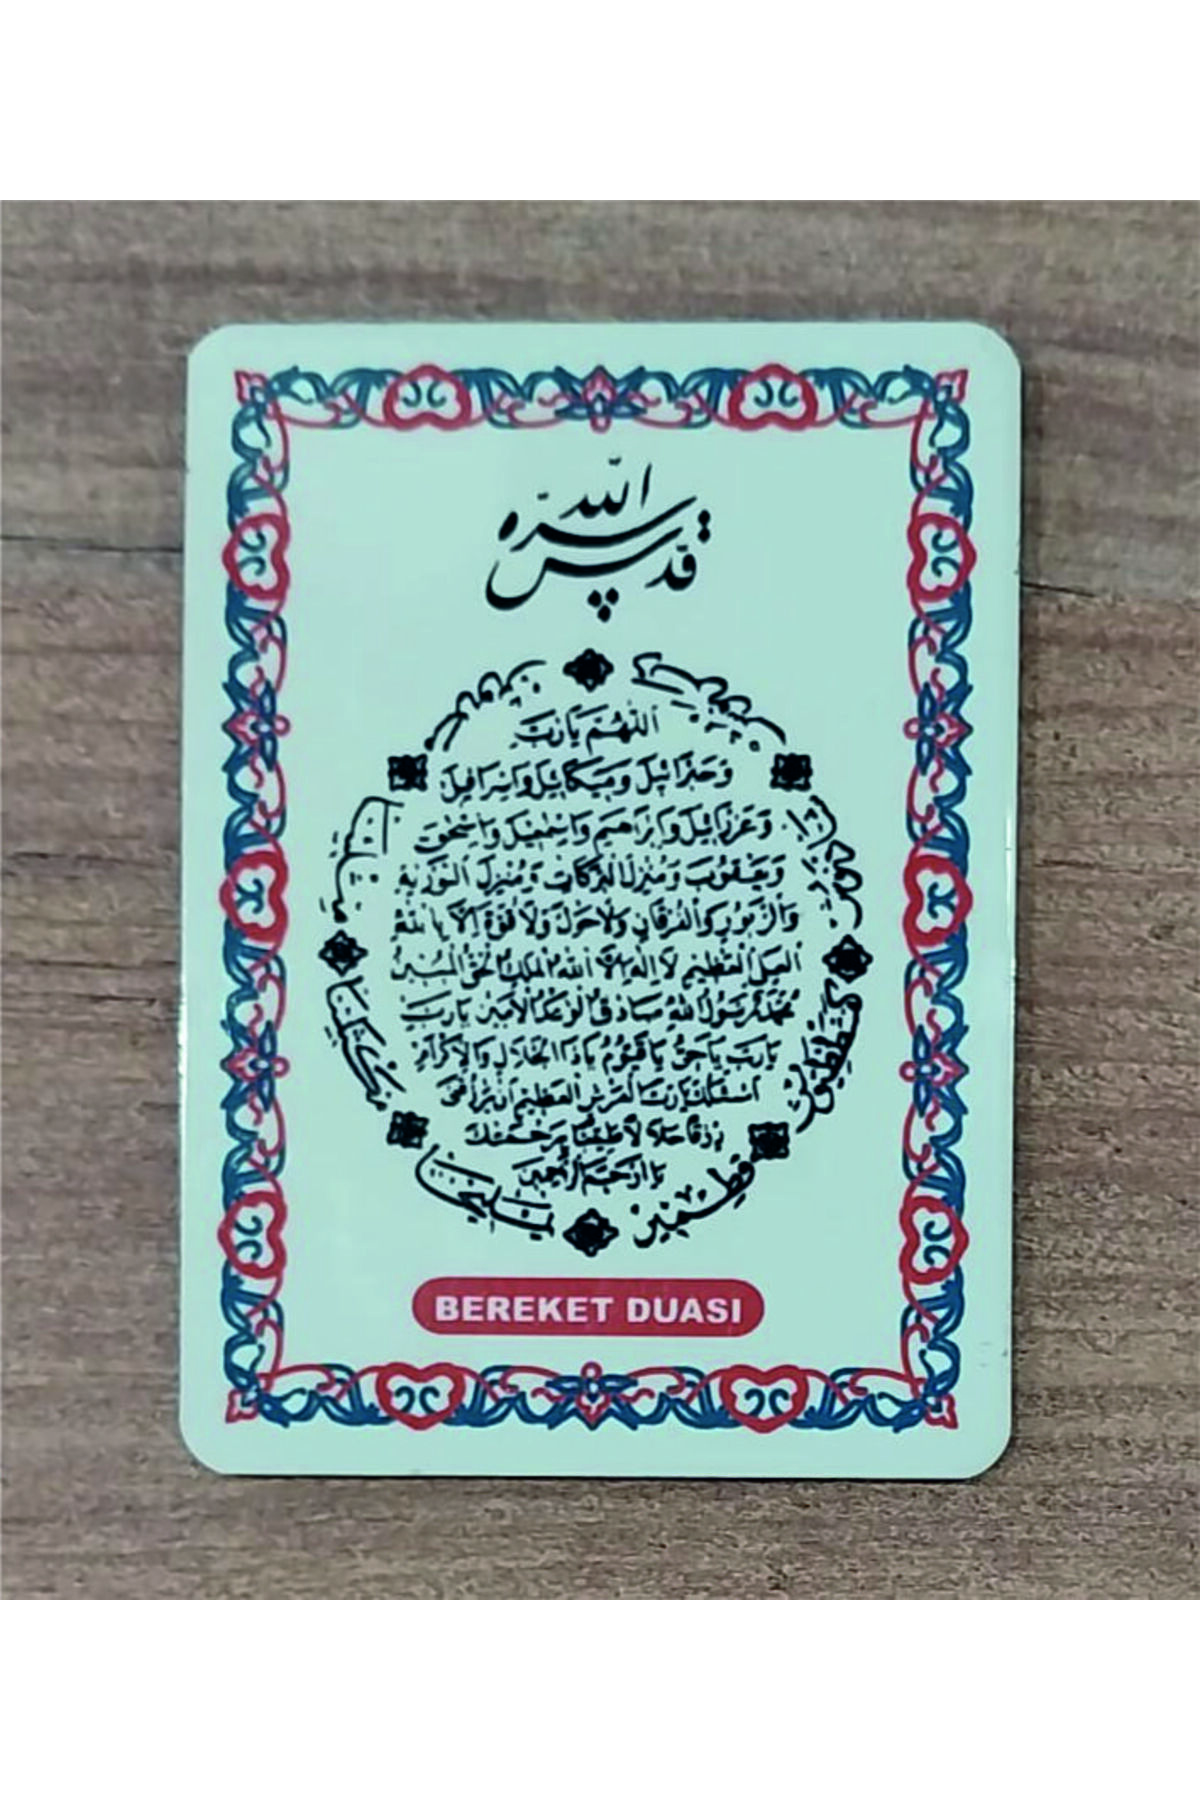 قدس الله سره
اللهم يا رب
وجبرائيل وميكائيل واسرافيل
وعزرائيل وابراهيم واسمعيل واسحق
ويعقوب ومنزل البركات ومنزل التورية
والزبور والفرقان ولا حول ولا قوة الا بالله
العلي العظيم لا اله الا الله الملك الحق المبين
محمد رسول الله صادق الوعد الامين يا رب
يا رب يا حي يا قيوم يا ذا الجلال والاكرام
اسئلك يا رب العرش العظيم ان ترزقني
رزقا حلالا طيبا برحمتك
يا ارحم الراحمين
يمليخا
كفشططيوش
قطمير
BEREKET DUASI